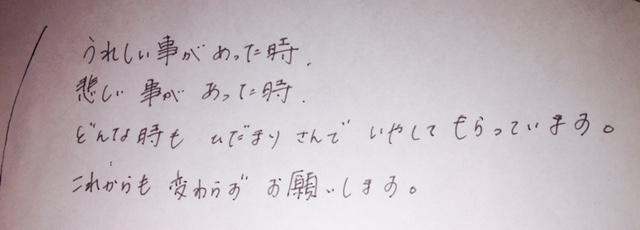 うれしい事があった時、
悲しい事があった時、
どんな時も ひだまりさんで いやしてもらっています。
これからも 変わらず お願いします。